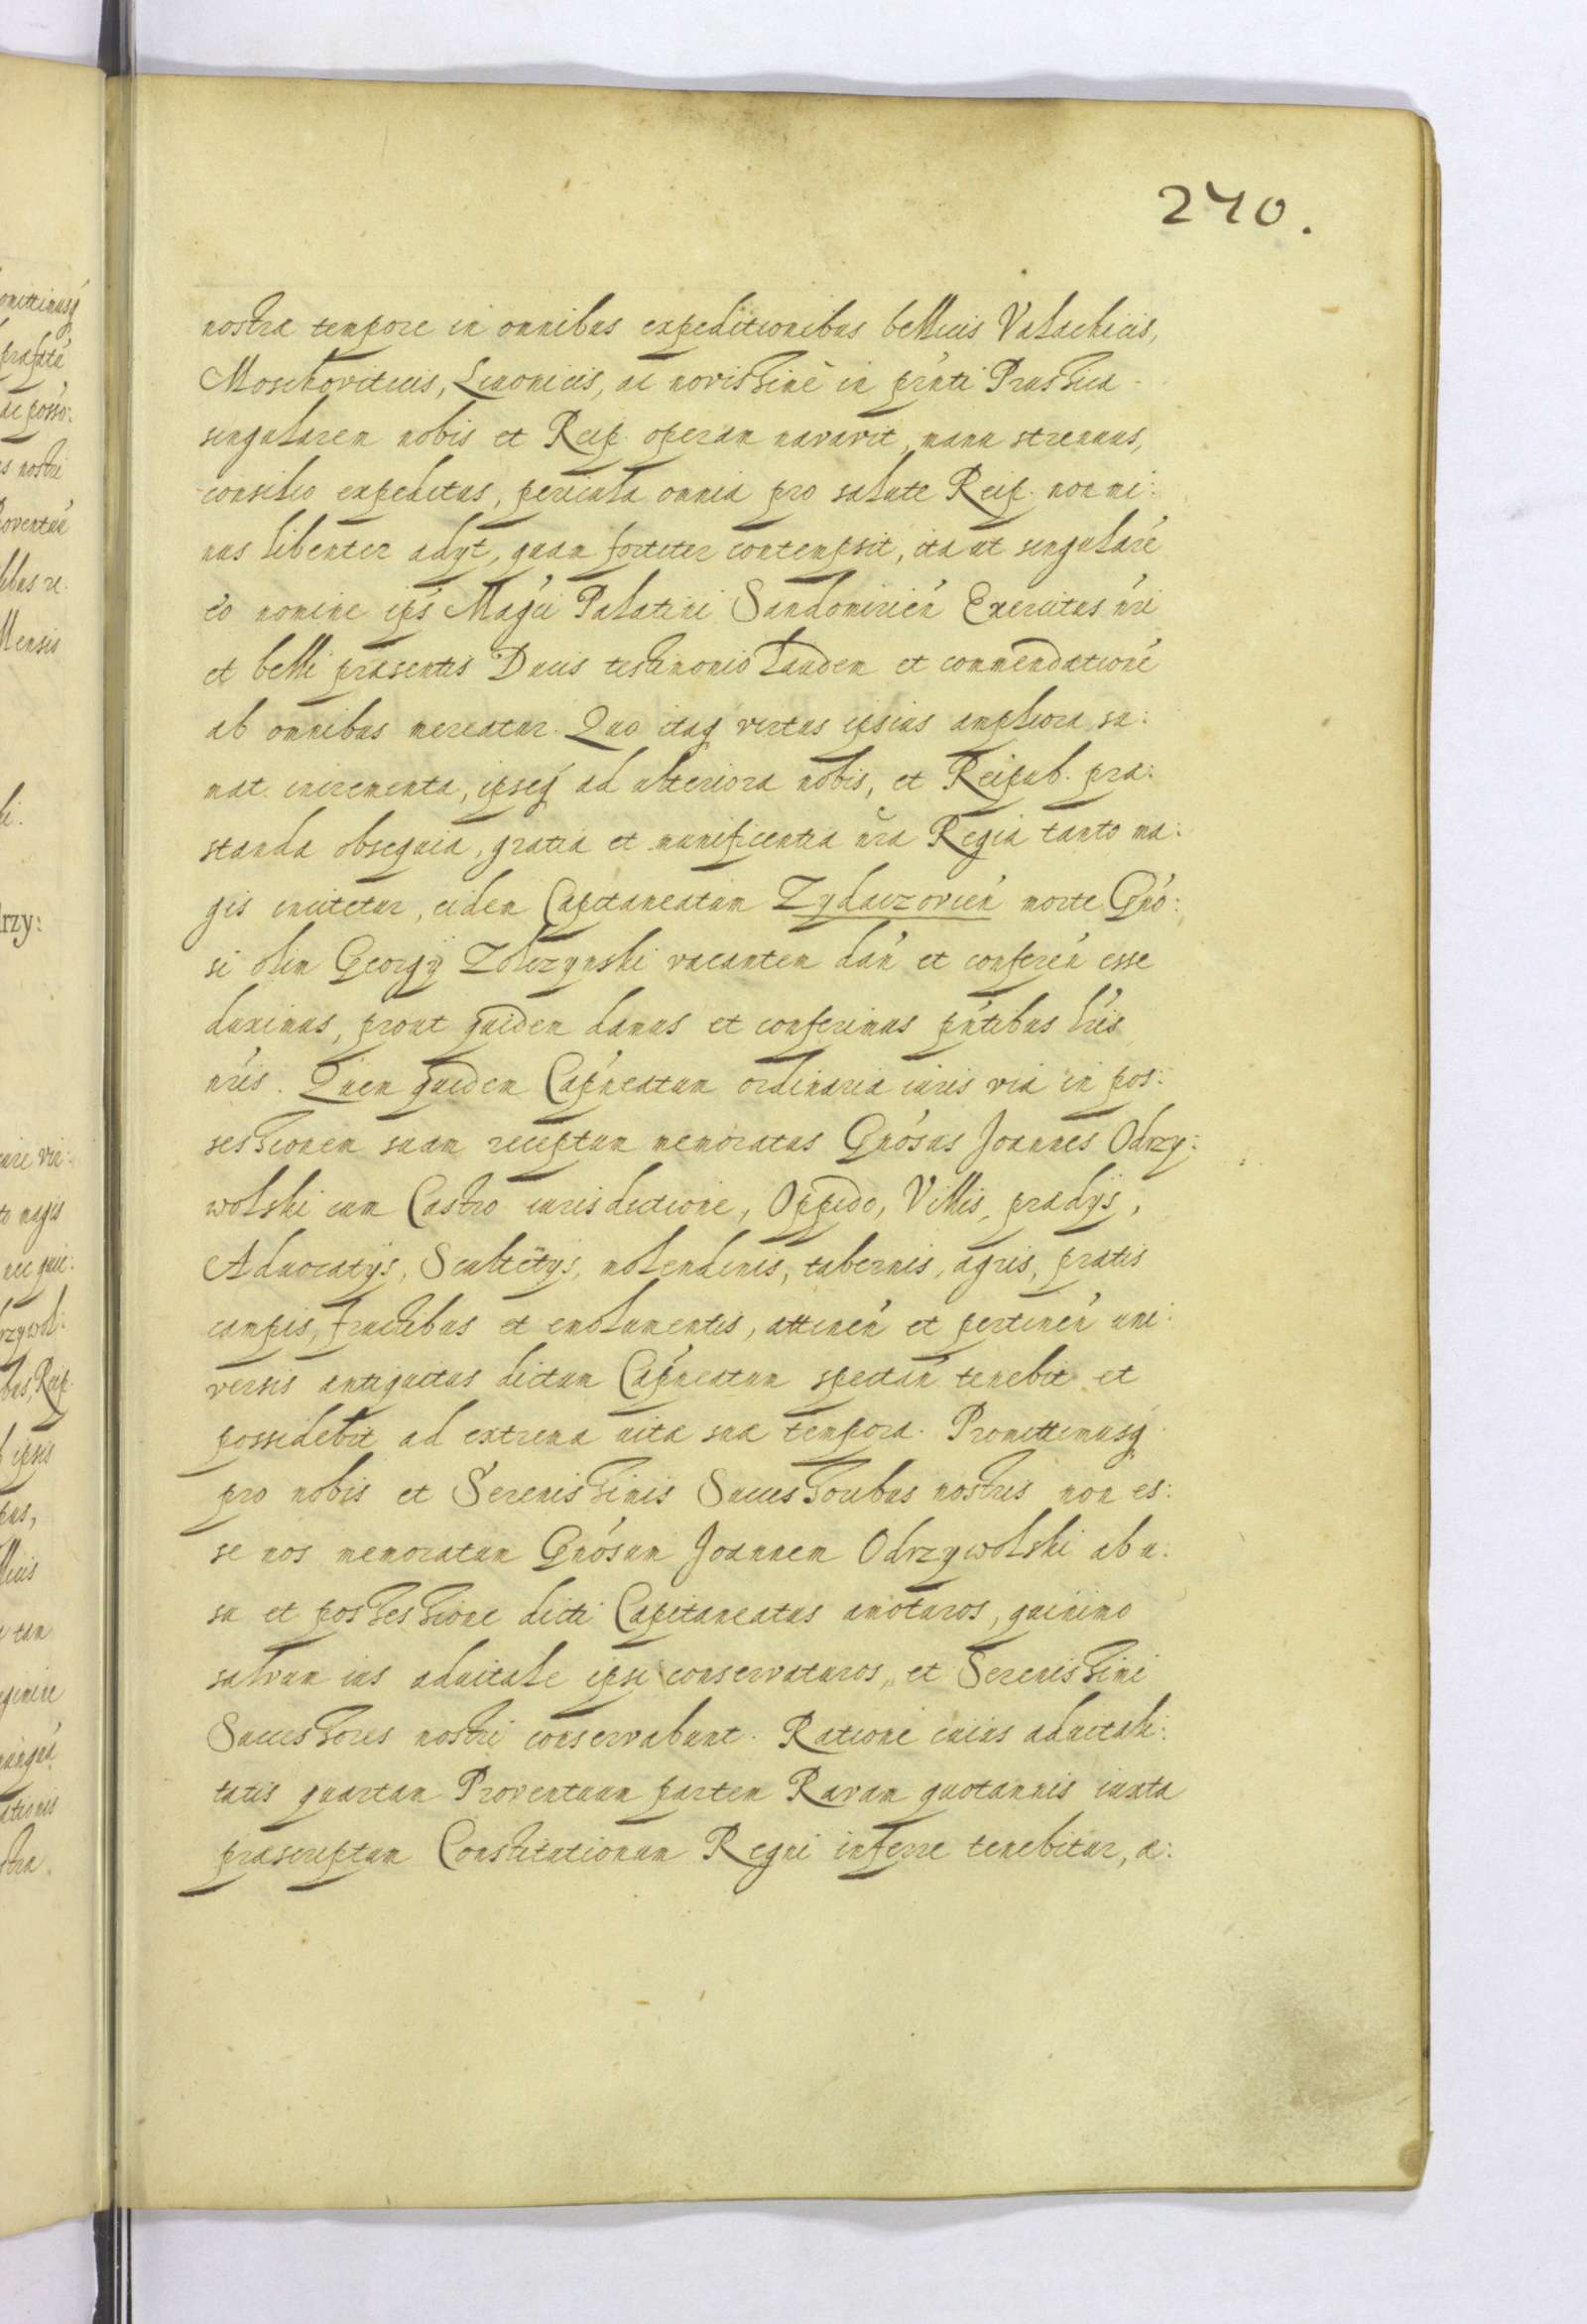 270.
nostræ tempore in omnibus expeditionibus bellicis Valachicis,
Moschoviticis, Livonicis, ac novissimè in pr̃nti Prussica
singularem nobis et Reip. operam navavit, manu strenuus,
consilio expeditus, pericula omnia pro salute Reip. non mi:
nus libenter adyt, quam fortiter contempsit, ita ut singularẽ
eo nomine ips̃ Mag̃ci Palatini Sandomirieñ Exercitus nr̃i
et belli præsentis Ducis testimonio laudem et commendationẽ
ab omnibus mereatur. Quo itaq virtus ipsius ampliora su:
mat incrementa, ipseq́ ad ulteriora nobis, et Reipub. præ:
standa obsequia, gratia et munificentia nr̃a Regia tanto ma:
gis incitetur, eidem Capitaneatum Zydaczovieñ morte Gño:
si olim Georgÿ Zolczynski vacantem dañ et confereñ esse
duximus, prout quidem damus et conferimus pñtibus lr̃is
nr̃is. Quem quidem Capñeatum ordinaria iuris via in pos:
sessionem suam receptum memoratus Gñosus Joannes Odrzy:
wolski cum Castro iurisdictione, Oppido, Villis, prædÿs,
Advocatÿs, Scultetÿs, molendinis, tabernis, agris, pratis
campis, fructibus et emolumentis, attineñ et pertineñ uni:
versis antiquitus dictum Capñeatum spectañ tenebit et
possidebit ad extrema uitæ suæ tempora. Promittimusq́
pro nobis et Serenissimis Successoribus nostris non es:
se nos memoratum Gñosum Joannem Odrzywolski ab u:
su et possessione dicti Capitaneatus amoturos, quinimo
salvum ius aduitale ipsi conservaturos, et Serenissimi
Successores nostri conservabunt. Ratione cuius aduitali:
tatis quartam Proventuum partem Ravam quotannis iuxta
præscriptum Constitutionum Regni inferre tenebitur, a: